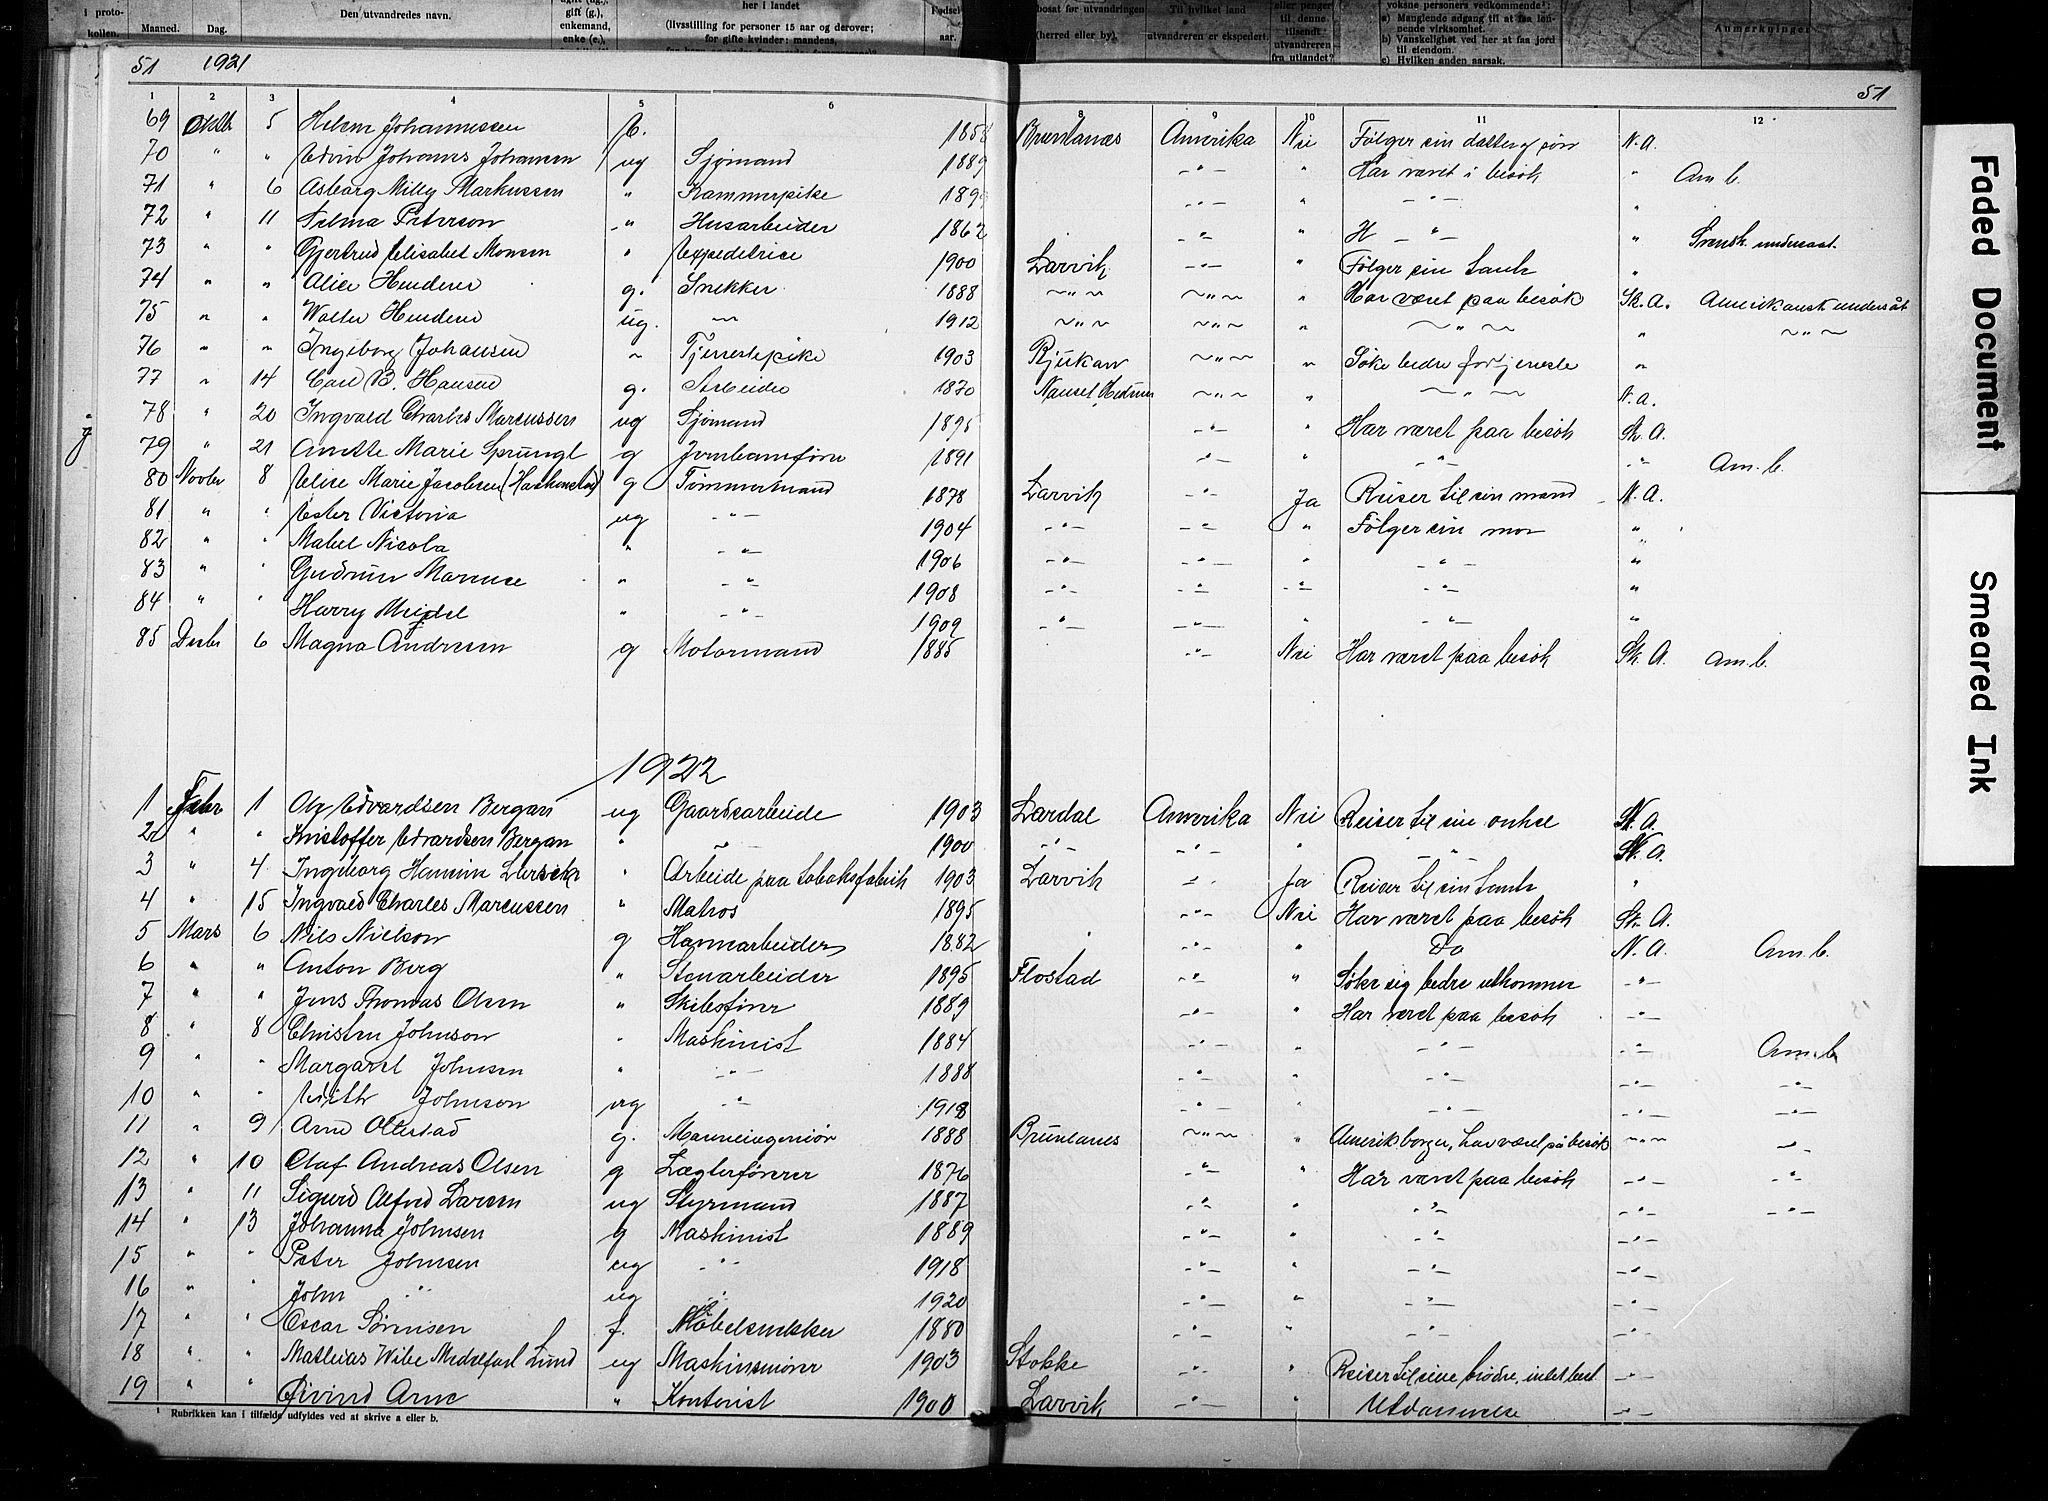 i proto-
kollen. Maaned. Dag.
Den utvandredes navn.
gift (g.),
enkemand,
enke (e.),
her i landet
(livsstilling for personer 15 aar og derover;
for gifte kvinder: mandens,
Fødsel
aar.
bosat før utvandringen
(herred eller by).
Til hvilket land
utvandreren er ekspedert.
eller penger
til denne
tilsendt
utvandreren
fra utlandet?
voksne personers vedkommende¹:
a) Manglende adgang til at faa løn-
nende virksomhet.
b) Vanskelighet ved her at faa jord
til eiendom.
c) Hvilken anden aarsak.
Anmerkninger
51 1921 51
1 2 3 4 5 6 8 9 10 11 12
69 Oktb 5 Helene Johannessen e. 1858 Brunlanæs Amerika Nei Følger sin datter og søn N. A.
70 " " Edvin Johannes Johansen ug Sjømand 1889 -"- " Har været i besøk " Am. b.
71 " 6 Asborg Milly Markussen " Kammerpike 189 -"- " -"- "
72 " 11 Selma Peterson " Husarbeider 1862 -"- " H -"- " Svensk undersaat.
73 " " Gjertrud Elisabet Monsen " Expeditrice 1900 Larvik -"- " Følger sin tante "
74 " " Alice g. Snekker 1888 ~"~ ~"~ " Har været paa besøk Sk. A. Amerikansk undersåt
75 " " Walter ug. ~ 1912 ~"~ ~"~ " ~"~ " ~"~
76 " " Ingeborg Johansen ~ Tjenestepike 1903 Rjukan ~"~ " Søke bedre fortjeneste "
77 " 14 Carl B. Hansen g. Arbeider 1870 Nanset, Hedrum ~"~ " ~"~ N. A.
78 " 20 Ingvald Charles Marcussen ug Sjømand 1895 -"- " Har været paa besøk Sk. A.
79 " 21 Anette Marie Sprungl g 1891 -"- " -"- -"- Am. b.
80 Novbr 8 Elise Marie Jacobsen g Tømmermand 1878 Larvik -"- Ja Reiser til sin mand N. A.
81 " " Ester Victoria ug -"- 1904 -"- -"- " Følger sin mor "
82 " " Mabel Nicola " -"- 1906 -"- -"- -"- "
83 " " Gudrun " -"- 1908 -"- -"- -"- -"- "
84 " " Harry " -"- 1909 -"- -"- " -"- "
85 Desbr 6 Magna Andresen g Motormand 1885 -"- Nei Har været paa besøk Sk. A. Am. b.
1922
1 Febr 1 Ole Edvardsen Bergan ug Gaardsarbeide 1903 Lardal Amerika Nei Reiser til sin onkel N. A.
2 " " Kristoffer Edvardsen Bergan " -"- 1900 -"- -"- " -"- N. A.
3 " 4 Ingeborg " Arbeide paa tobaksfabrik 1903 Larvik -"- Ja Reiser til sin tante "
4 " 15 Ingvald Charles Marcussen " Matros 1895 -"- Nei Har været paa besøk Sk. A.
5 Mars 6 Nils Nielson g Havnearbeider 1882 -"- " Do N. A. Am. b.
6 " " Anton Berg " Stenarbeider 1895 Flostad -"- " Søke sig bedre utkommer -"-
7 " " Jens Thomas Olsen " Skibsfører 1889 -"- " Har været paa besøk -"-
8 " 8 Christen Johnson " Maskinist 1884 -"- " -"- -"- Am. b.
9 " " Margaret Johnsen " -"- 1888 -"- " -"- -"- -"-
10 " " Edith Johnson ug -"- 1918 -"- " -"- -"- -"-
11 " 9 Arne Ollestad g. 1888 Brunlanes ~"~ " Amerik borger, har været på besøk ~"~ -"-
12 " 10 Olaf Andreas Olsen g Lægterfører 1876 -"- " Har været paa besøk -"- -"-
13 " 11 Sigurd Alfred Larsen ug Styrmand 1887 -"- " -"- -"- -"-
14 " 13 Johanna Johnsen g Maskinist 1889 -"- " -"- -"-
15 " " Peter Johnsen ug -"- 1918 -"- " -"- -"-
16 " " John -"- ug -"- 1920 -"- " -"- -"-
17 " " Oscar Sørensen f. Møbelsnekker 1880 -"- " -"- -"-
18 " " Mathias Wibe Lund ug 1903 Stokke -"- " Reiser til sine brødre, intet best. -"-
19 " " Øivind Arne " Kontorist 1900 Larvik -"- " Utdannelse -"-
¹ Rubrikken kan i tilfælde utfyldes ved at skrive a eller b.
Faded Document
Smeared Ink